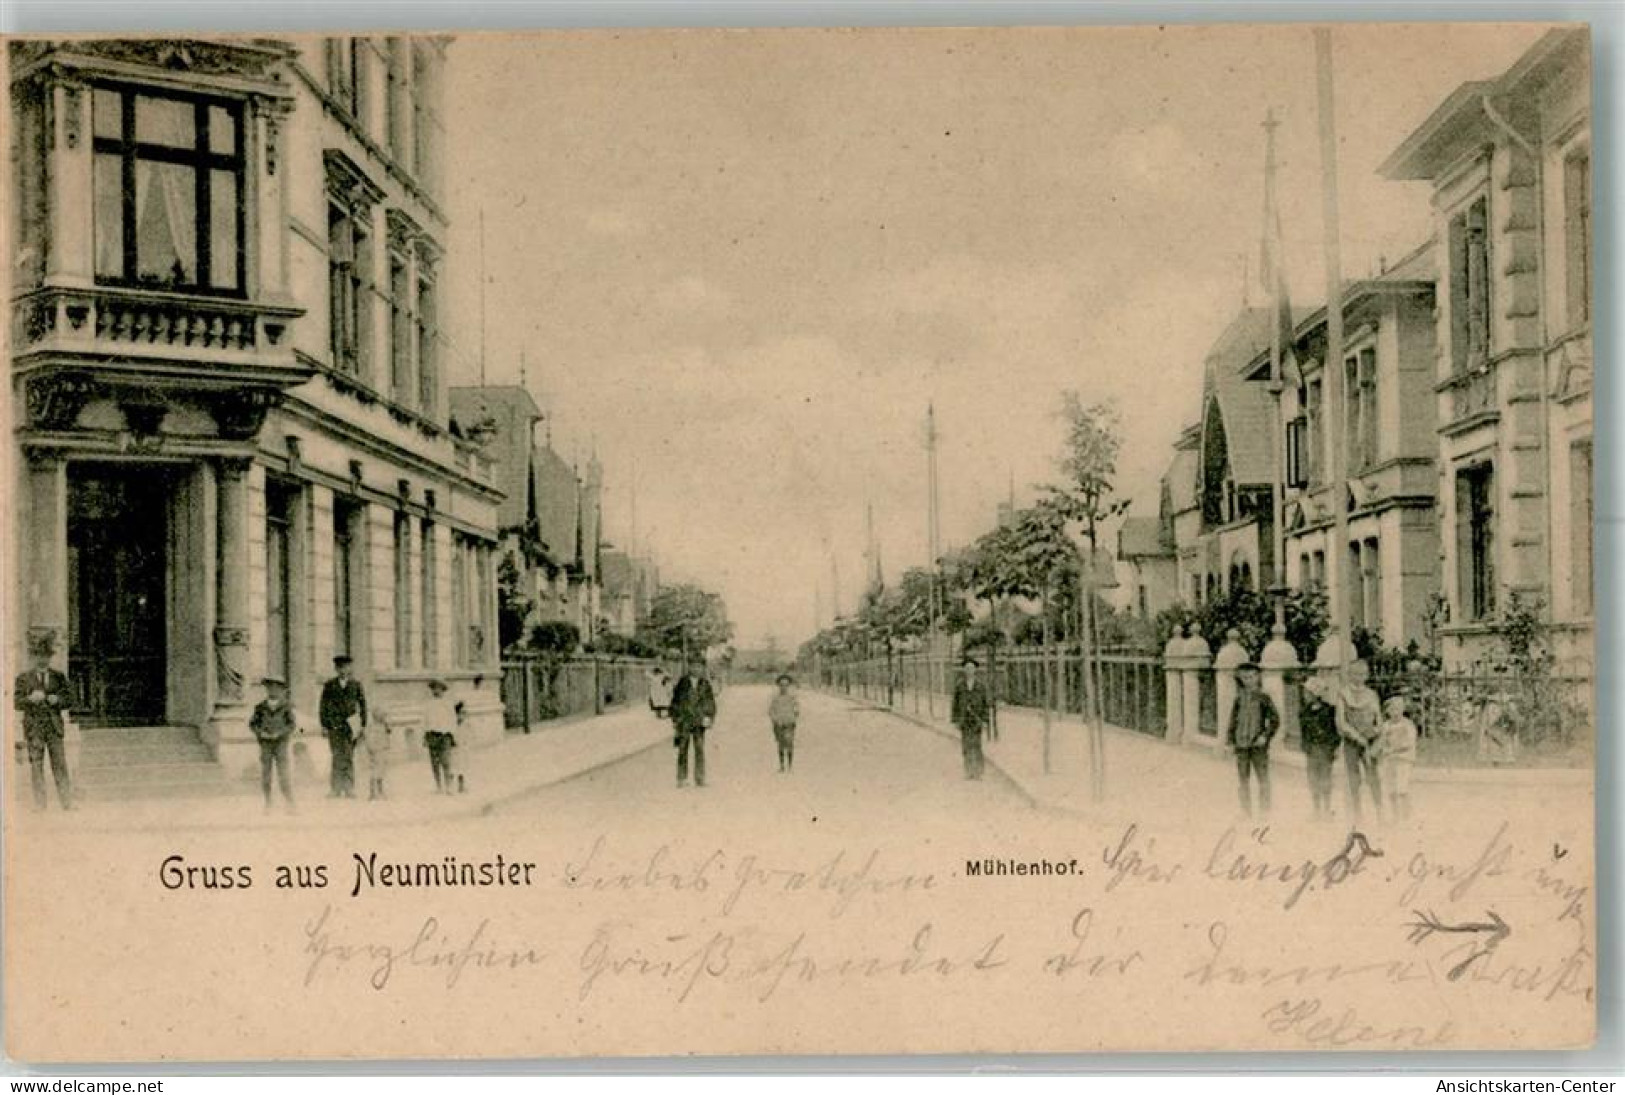 Gruss aus Neumünster Liebes Gretchen Mühlenhof. Hier längs geht uns
Herzlichen Gruß sendet Dir Deine Straße
Helene
www.delcampe.net
Ansichtskarten-Center